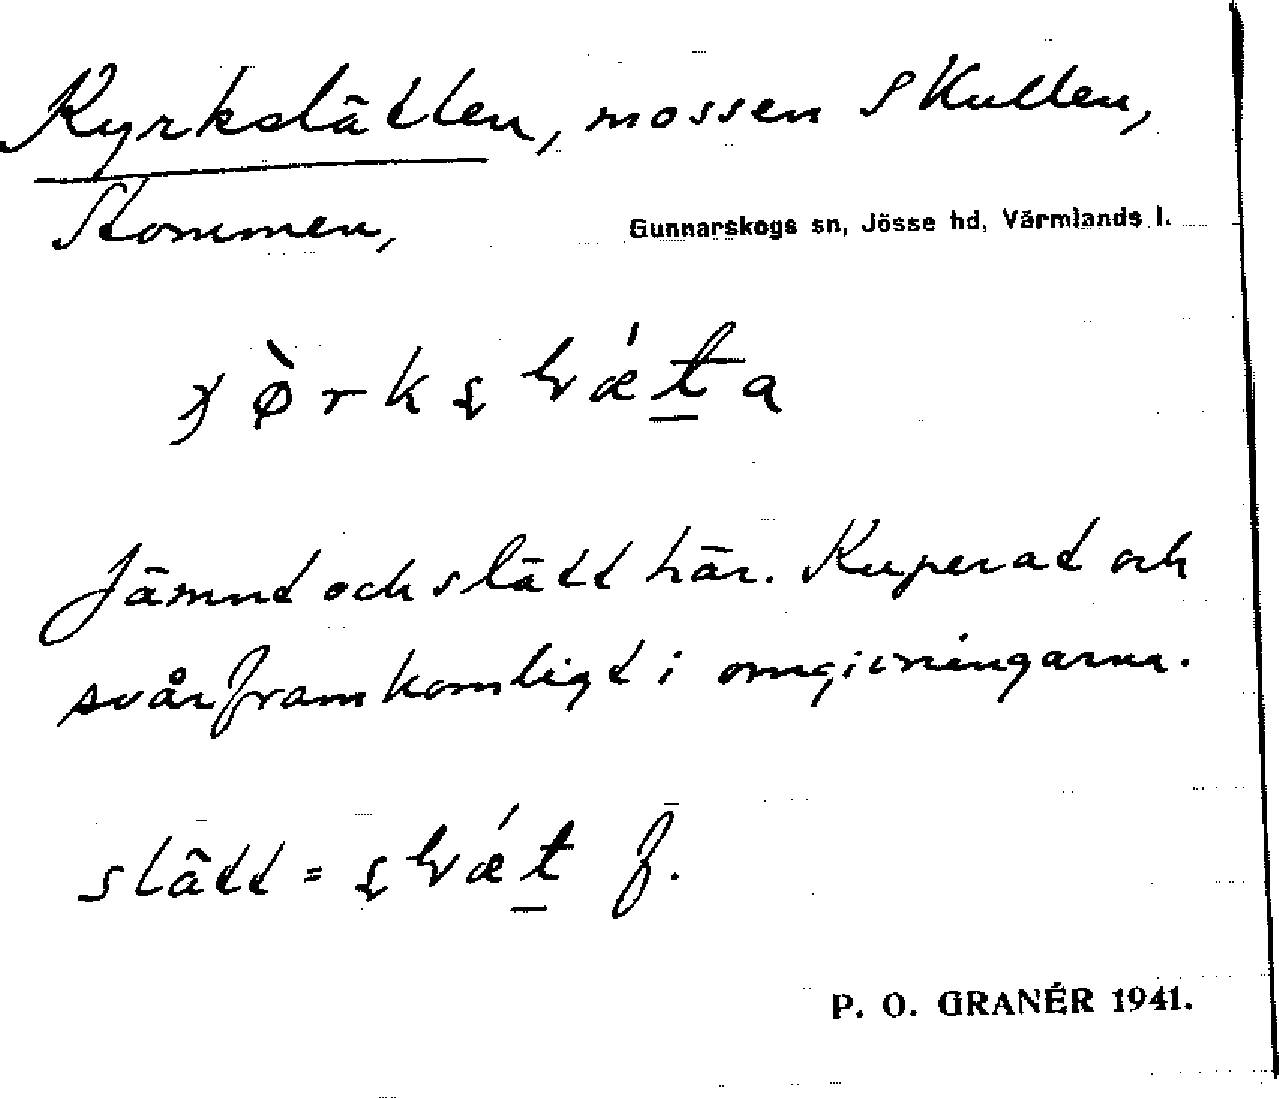 Kyrkslätten, mossen S Kullen,
Stommen,
Gunnarskogs sn, Jösse hd, Värmlands l.
Jämnt och slätt här. Kuperat och
svårframkomligt i omgivningarna.
slätt = f.
P. O. GRANÉR 1941.